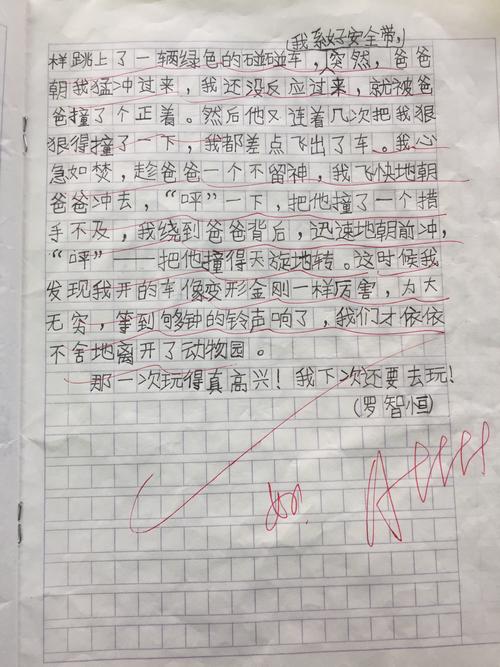 我系好安全带，
样跳上了一辆绿色的碰碰车，突然，爸爸
朝我猛冲过来，我还没反应过来，就被爸
爸撞了个正着。然后他又连着几次把我狠
狠得撞了一下，我都差点飞出了车。我心
急如焚，趁爸爸一个不留神，我飞快地朝
爸爸冲去，“呯”一下，把他撞了一个措
手不及，我绕到爸爸背后，迅速地朝前冲，
“呯”——把他撞得天旋地转。这时候我
发现我开的车像变形金刚一样厉害，力大
无穷，等到时钟的铃声响了，我们才依依
不舍地离开了动物园。
那一次玩得真高兴！我下次还要去玩！
（罗智恒）
A++++